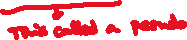 This called a pseudo